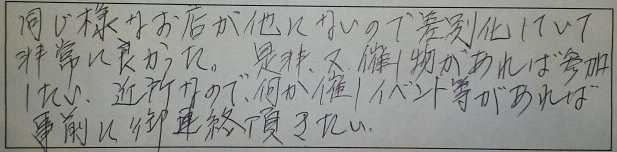 同じ様なお店が他にないので差別化していて
非常に良かった。是非、又、催し物があれば参加
したい、近所なので、何か催しイベント等があれば
事前に御連絡頂きたい、